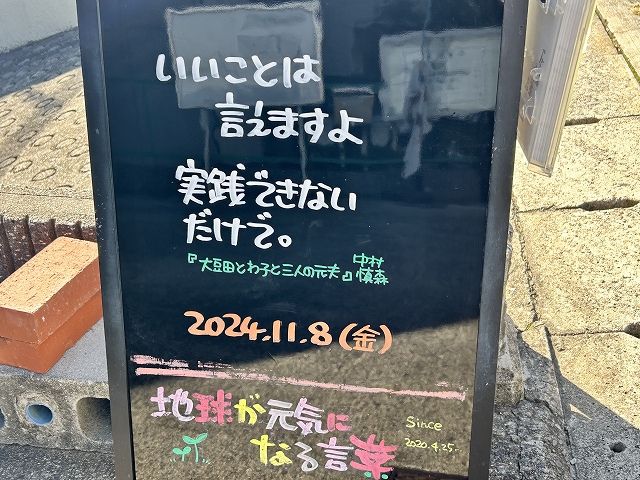 いいことは
言えますよ
実践できない
だけで。
『大豆田とわ子と三人の元夫』中村慎森
2024.11.8(金)
地球が元気に
なる言葉
Since
2020.4.25~